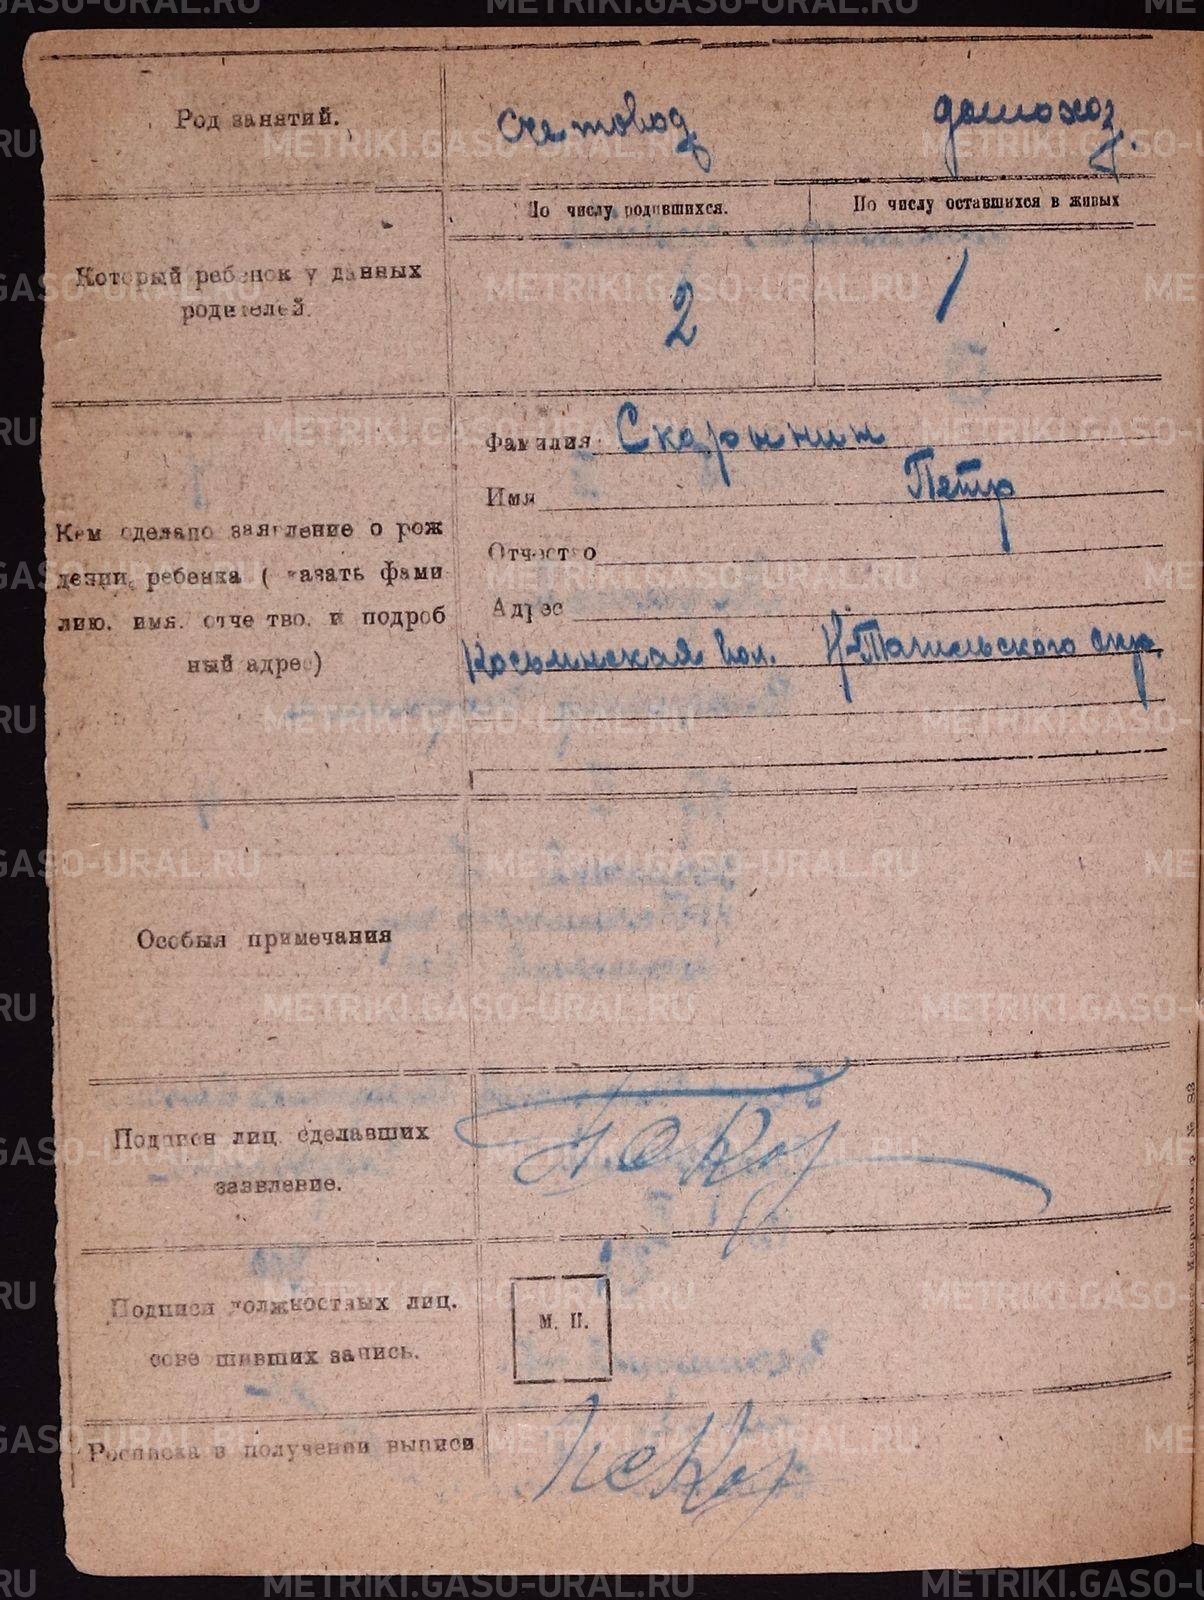 METRIKI.GASO-URAL.RU
Род занятий.
счетовод
домохоз.
По числу родившихся.
По числу оставшихся в живых
Который ребенок у данных
родителей.
2
1
Фамилия
Имя Петр
Отчество
Адрес
Н-Тагильского окр.
Кем сделано заявление о рож
дении ребенка (казать фами
лию. имя. отче тво. и подроб
ный адрес)
Особыя примечания
Подписи лиц сделавших
заявление.
Подписи должностных лиц.
сове шивших запись.
М. П.
Росписка в получении выписи